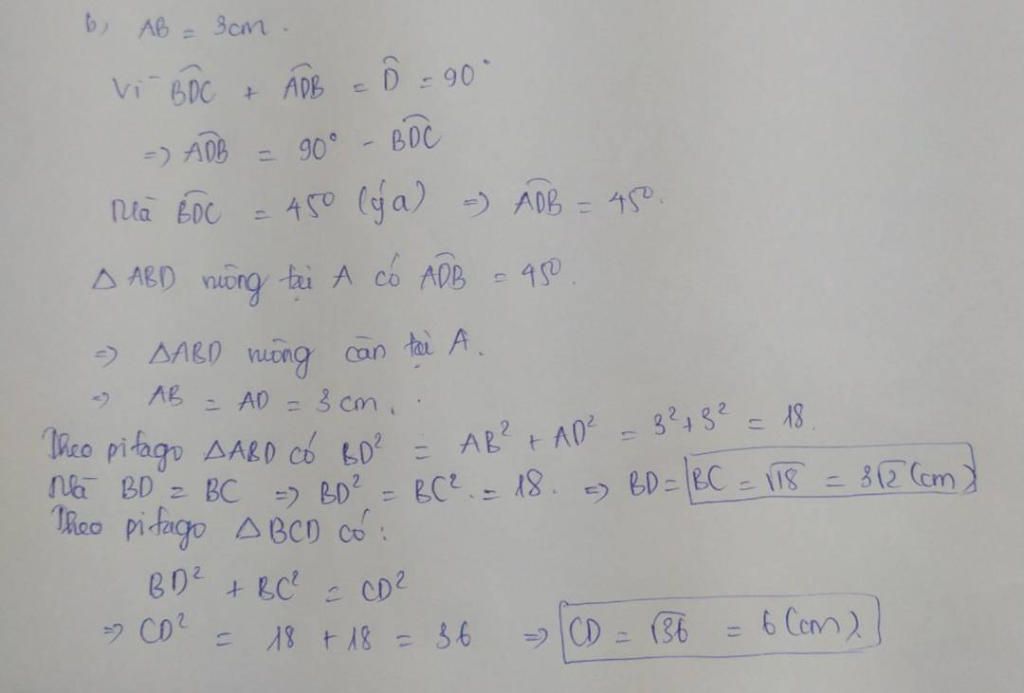 b, AB = 3cm.
Vì $\widehat{BDC}$ + $\widehat{ADB}$ = $\widehat{D}$ = 90°
=> $\widehat{ADB}$ = 90° - $\widehat{BDC}$
Mà $\widehat{BDC}$ = 45° (ý a) => $\widehat{ADB}$ = 45°.
△ ABD vuông tại A có $\widehat{ADB}$ = 45°.
=> △ABD vuông cân tại A.
=> AB = AD = 3cm.
Theo pitago △ABD có BD² = AB² + AD² = 3² + 3² = 18.
Mà BD = BC => BD² = BC² = 18. => BD = BC = √18 = 3√2 (cm)
Theo pitago △BCD có:
BD² + BC² = CD²
=> CD² = 18 + 18 = 36 => CD = √36 = 6 (cm)